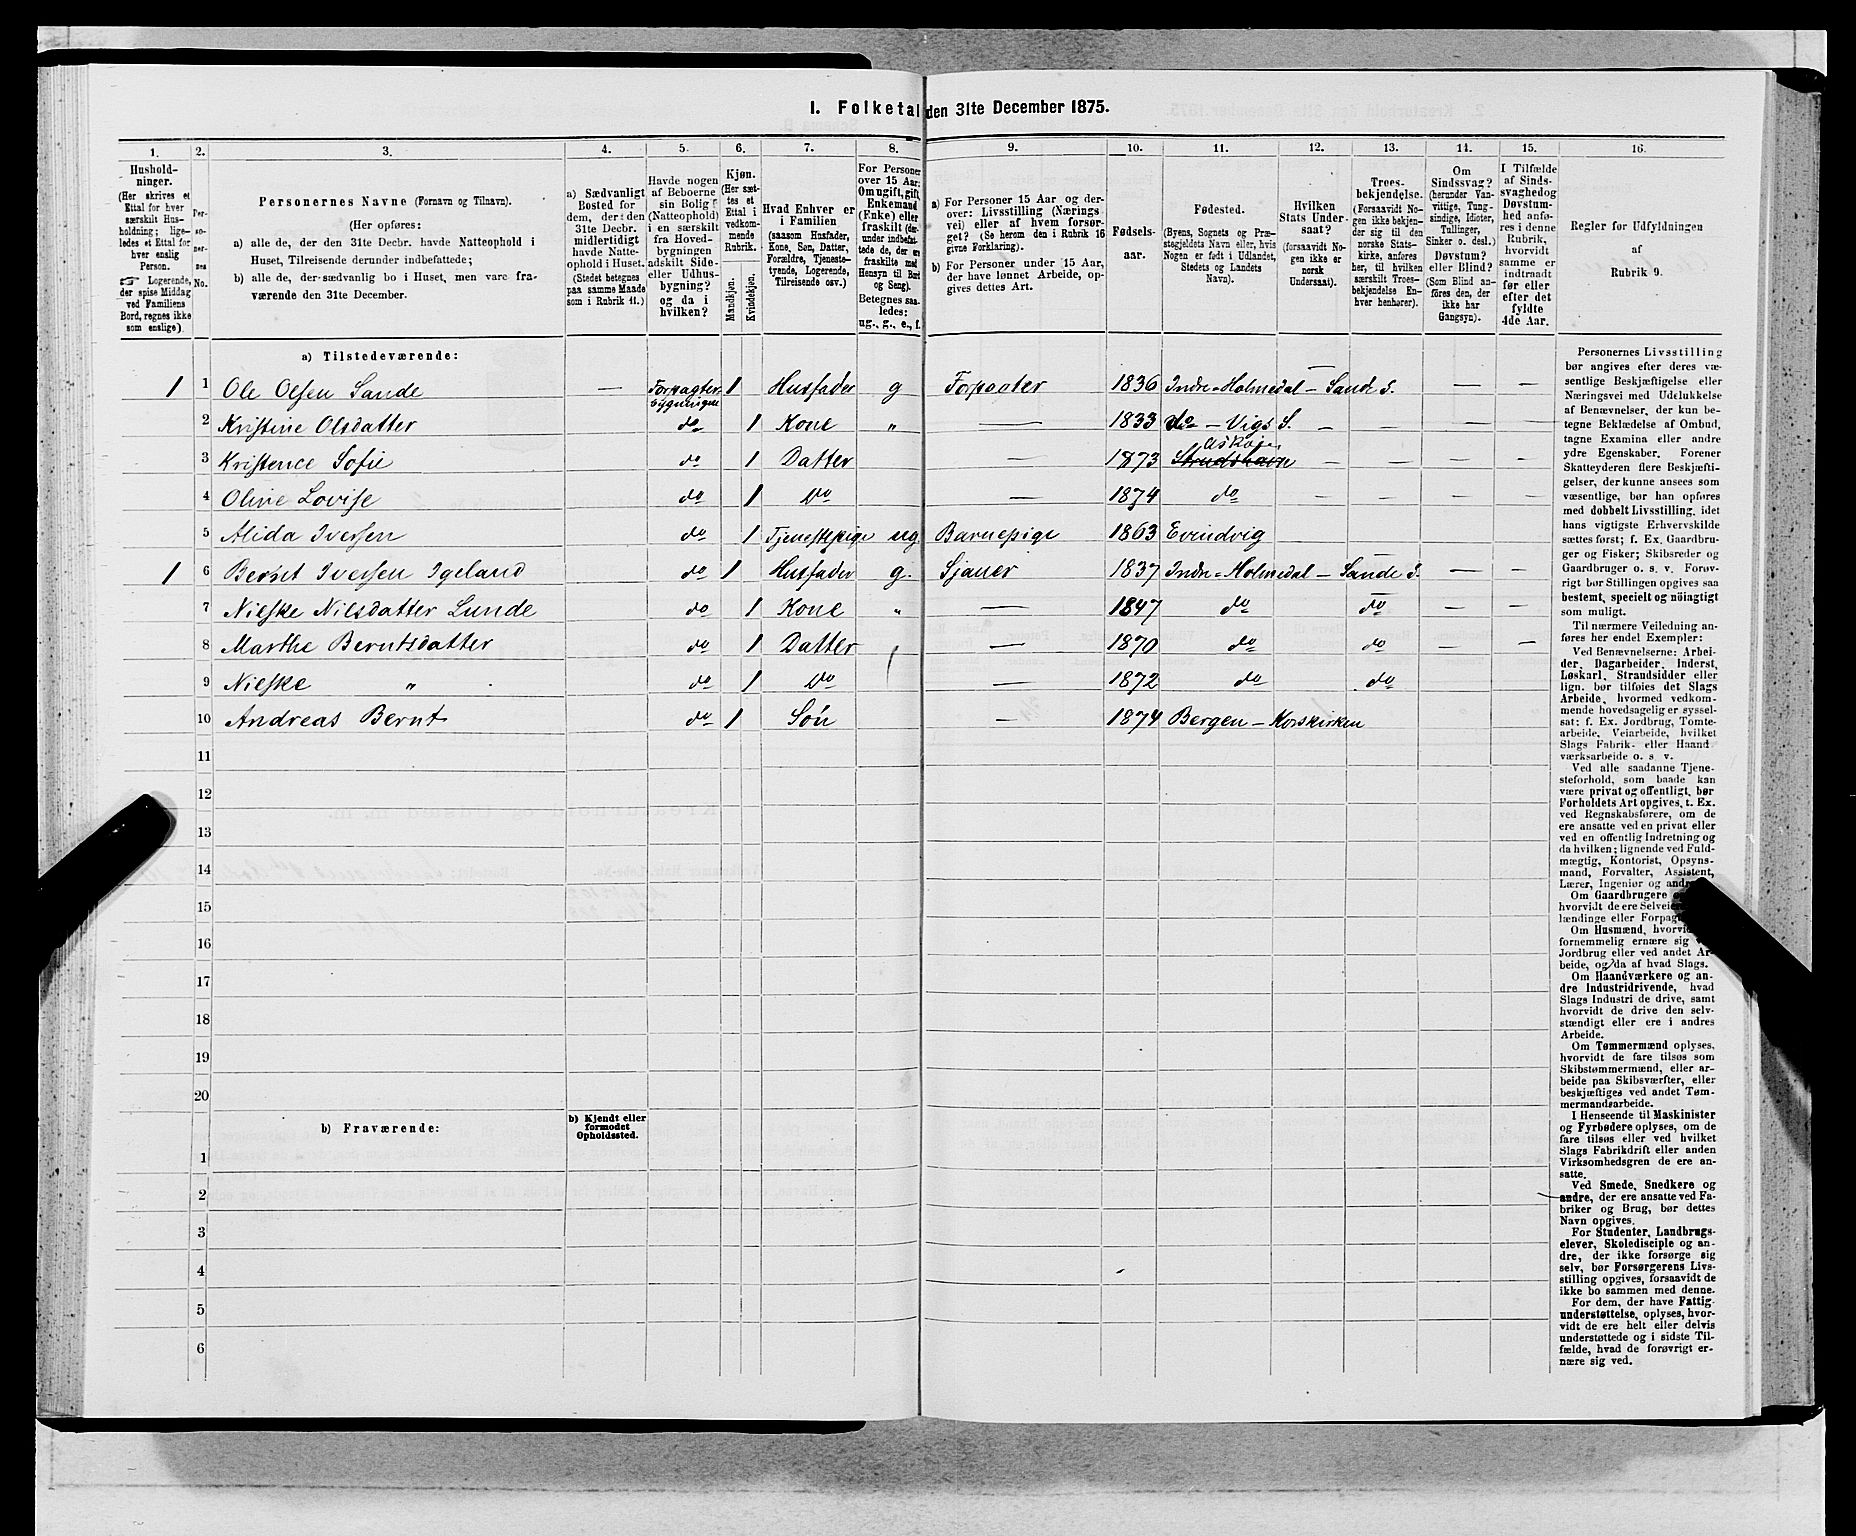 1. Folketal den 31te December 1875.
1. 2. 3. 4. 5. 6. 7. 8. 9. 10. 11. 12. 13. 14. 15. 16.
Hushold-
ninger.
(Her skrives et
Ettal for hver
særskilt Hus-
holdning; lige-
ledes et Ettal for
hver enslig
Person.
☞ Logerende,
der spise Middag
ved Familiens
Bord, regnes ikke
som enslige).
Per-
so-
ner-
nes
No.
Personernes Navne (Fornavn og Tilnavn).
(Her opføres:
a) alle de, der den 31te Decbr. havde Natteophold i
Huset, Tilreisende derunder indbefattede;
b) alle de, der sædvanlig bo i Huset, men vare fra-
værende den 31te December.
a) Sædvanligt
Bosted for
dem, der den
31te Decbr.
midlertidigt
havde Natte-
ophold i Huset.
(Stedet betegnes
paa samme Maade
som i Rubrik 11.)
Havde nogen
af Beboerne
sin Bolig
(Natteophold)
i en særskilt
fra Hoved-
bygningen
adskilt Side-
eller Udhus-
bygning?
og da i
hvilken?
Kjøn.
(Her sæt-
tes et
Ettal i
vedkom-
mende
Rubrik.
Mandkjøn.
Kvindekjøn.
Hvad Enhver er
i Familien
(saasom Husfader,
Kone, Søn, Datter,
Forældre, Tjeneste-
tyende, Logerende,
Tilreisende osv.)
For Personer
over 15 Aar:
Om ugift, gift,
Enkemand
(Enke) eller
fraskilt (der-
under indbefat-
tede de, der ere
fraskilte med
Hensyn til Bord
og Seng).
Betegnes saa-
ledes:
ug., g., e., f.
a) For Personer 15 Aar og der-
over: Livsstilling (Nærings-
vei) eller af hvem forsør-
get? (Se herom den i Rubrik 16
givne Forklaring).
b) For Personer under 15 Aar,
der have lønnet Arbeide, op-
gives dettes Art.
Fødsels-
aar.
Fødested.
(Byens, Sognets og Præ-
stegjeldets Navn eller, hvis
Nogen er født i Udlandet,
Stedets og Landets
Navn).
Hvilken
Stats Under-
saat?
(forsaavidt No-
gen ikke er
norsk
Undersaat).
Troes-
bekjendelse.
(Forsaavidt No-
gen ikke bekjen-
der sig til den
norske Stats-
kirke, anføres
her, til hvilken
særskilt Troes-
bekjendelse En-
hver henhører).
Om
Sindssvag?
(herunder Van-
vittige, Tung-
sindige, Idioter,
Tullinger,
Sinker o. desl.)
Døvstum?
eller Blind?
(Som Blind an-
føres den, der
ikke har
Gangsyn).
I Tilfælde
af Sinds-
svaghed og
Døvstum-
hed anfø-
res i denne
Rubrik,
hvorvidt
samme er
indtraadt
før eller
efter det
fyldte
4de Aar.
Regler for Udfyldningen
af
Rubrik 9.
a) Tilstedeværende:
1 1 Ole Olsen Sande — Forpagter-bygningen 1 Husfader g Forpagter 1836 Indre-Holmedal — Sande S. — —
2 Kristine Olsdatter do 1 Kone " — 1833 do — Vigs S. — — — —
3 Kristence Sofie do 1 Datter — 1873 Strudshavn Askøen — — — —
4 Oline Lovise do 1 do — 1874 do — — — —
5 Alida Iversen do 1 Tjenestepige ug Barnepige 1863 Evindvig
1 6 Bernt Iversen Igeland do 1 Husfader g. Sjauer 1837 Indre-Holmedal — Sande S. — —
7 Nilske Nilsdatter Lunde do 1 Kone " — 1847 do do — —
8 Marthe Berntsdatter do 1 Datter — 1870 do do — —
9 Nilske " do 1 do — 1872 do do
10 Andreas Bernt do 1 Søn — 1874 Bergen — Korskirken
11
12
13
14
15
16
17
18
19
20
b) Fraværende:
b) Kjendt eller
formodet
Opholdssted.
1
2
3
4
5
6
Personernes Livsstilling
bør angives efter deres væ-
sentlige Beskjæftigelse eller
Næringsvei med Udelukkelse
af Benævnelser, der kun be-
tegne Beklædelse af Ombud,
tagne Examina eller andre
ydre Egenskaber. Forener
Skatteyderen flere Beskjæfti-
gelser, der kunne ansees som
væsentlige, bør han opføres
med dobbelt Livsstilling, idet
hans vigtigste Erhvervskilde
sættes først; f. Ex. Gaardbru-
ger og Fisker; Skibsreder og
Gaardbruger o. s. v. Forøv-
rigt bør Stillingen opgives saa
bestemt, specielt og nöiagtigt
som muligt.
Til nærmere Veiledning an-
føres her endel Exempler:
Ved Benævnelserne: Arbei-
der, Dagarbeider, Inderst,
Løskarl, Strandsidder eller
lign. bør tilføies det Slags
Arbeide, hvormed vedkom-
mende hovedsagelig er syssel-
sat; f. Ex. Jordbrug, Tomte-
arbeide, Veiarbeide, hvilket
Slags Fabrik- eller Haand-
værksarbeide o. s. v.
Ved alle saadanne Tjene-
steforhold, som baade kan
være privat og offentligt, bør
Forholdets Art opgives, t. Ex.
ved Regnskabsførere, om de
ere ansatte ved en privat eller
ved en offentlig Indretning og
da hvilken; lignende ved Fuld-
mægtig, Kontorist, Opsyns-
mand, Forvalter, Assistent,
Lærer, Ingeniør og
Om Gaardbrugere
hvorvidt de ere
lændinge eller
Om Husmænd,
fornemmelig ernære sig
Jordbrug eller ved andet Ar-
beide, og da af hvad Slags.
Om Haandværkere og an-
dre Industridrivende, hvad
Slags Industri de drive, samt
hvorvidt de drive den selv-
stændigt eller ere i andres
Arbeide.
Om Tømmermænd oplyses,
hvorvidt de fare tilsøs som
Skibstømmermænd, eller ar-
beide paa Skibsværfter, eller
beskjæftiges ved andet Tøm-
mermandsarbeide.
I Henseende til Maskinister
og Fyrbødere oplyses, om de
fare tilsøs eller ved hvilket
Slags Fabrikdrift eller anden
Virksomhedsgren de ere an-
satte.
Ved Smede, Snedkere og
andre, der ere ansatte ved Fa-
briker og Brug, bør dettes
Navn opgives.
For Studenter, Landbrugs-
elever, Skoledisciple og an-
dre, der ikke forsørge sig
selv, bør Forsørgerens Livs-
stilling opgives, forsaavidt de
ikke bo sammen med denne.
For dem, der have Fattig-
understøttelse, oplyses, hvor-
vidt de ere helt eller delvis
understøttede og i sidste Til-
fælde, hvad de forøvrigt er-
nære sig ved.